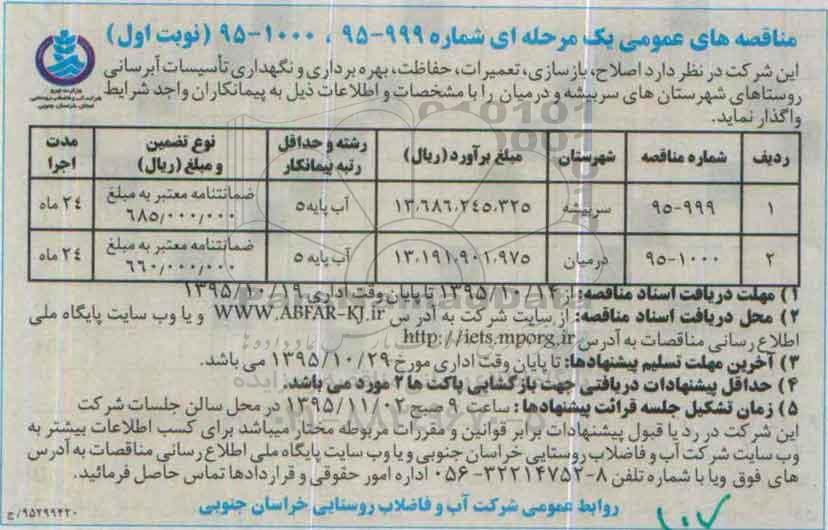 مناقصه های عمومی یک مرحله ای شماره ۹۹۹-۹۵ ، ۱۰۰۰-۹۵ (نوبت اول)
این شرکت در نظر دارد اصلاح، بازسازی، تعمیرات، حفاظت، بهره برداری و نگهداری تأسیسات آبرسانی
روستاهای شهرستان های سربیشه و درمیان را با مشخصات و اطلاعات ذیل به پیمانکاران واجد شرایط
واگذار نماید.
ردیف شماره مناقصه شهرستان مبلغ برآورد (ریال) رشته و حداقل رتبه پیمانکار نوع تضمین و مبلغ (ریال) مدت اجرا
۱ ۹۹۹-۹۵ سربیشه ۱۳،۶۸۶،۲۴۵،۳۲۵ آب پایه ۵ ضمانتنامه معتبر به مبلغ ۶۸۵/۰۰۰/۰۰۰ ۲۴ ماه
۲ ۱۰۰۰-۹۵ درمیان ۱۳،۱۹۱،۹۰۱،۹۷۵ آب پایه ۵ ضمانتنامه معتبر به مبلغ ۶۶۰/۰۰۰/۰۰۰ ۲۴ ماه
۱) مهلت دریافت اسناد مناقصه: از ۱۳۹۵/۱۰/۱۴ تا پایان وقت اداری ۱۳۹۵/۱۰/۱۹
۲) محل دریافت اسناد مناقصه: از سایت شرکت به آدرس WWW.ABFAR-KJ.ir و یا وب سایت پایگاه ملی
اطلاع رسانی مناقصات به آدرس http://iets.mporg.ir
۳) آخرین مهلت تسلیم پیشنهادها: تا پایان وقت اداری مورخ ۱۳۹۵/۱۰/۲۹ می باشد.
۴) حداقل پیشنهادات دریافتی جهت بازگشایی پاکت ها ۲ مورد می باشد.
۵) زمان تشکیل جلسه قرائت پیشنهادها: ساعت ۹ صبح ۱۳۹۵/۱۱/۰۲ در محل سالن جلسات شرکت
این شرکت در رد یا قبول پیشنهادات برابر قوانین و مقررات مربوطه مختار میباشد برای کسب اطلاعات بیشتر به
وب سایت شرکت آب و فاضلاب روستایی خراسان جنوبی و یا وب سایت پایگاه ملی اطلاع رسانی مناقصات به آدرس
های فوق ویا با شماره تلفن ۸-۳۲۲۱۴۷۵۲-۰۵۶ اداره امور حقوقی و قراردادها تماس حاصل فرمائید.
روابط عمومی شرکت آب و فاضلاب روستایی خراسان جنوبی
۹۵۲۹۹۴۲۰/ج